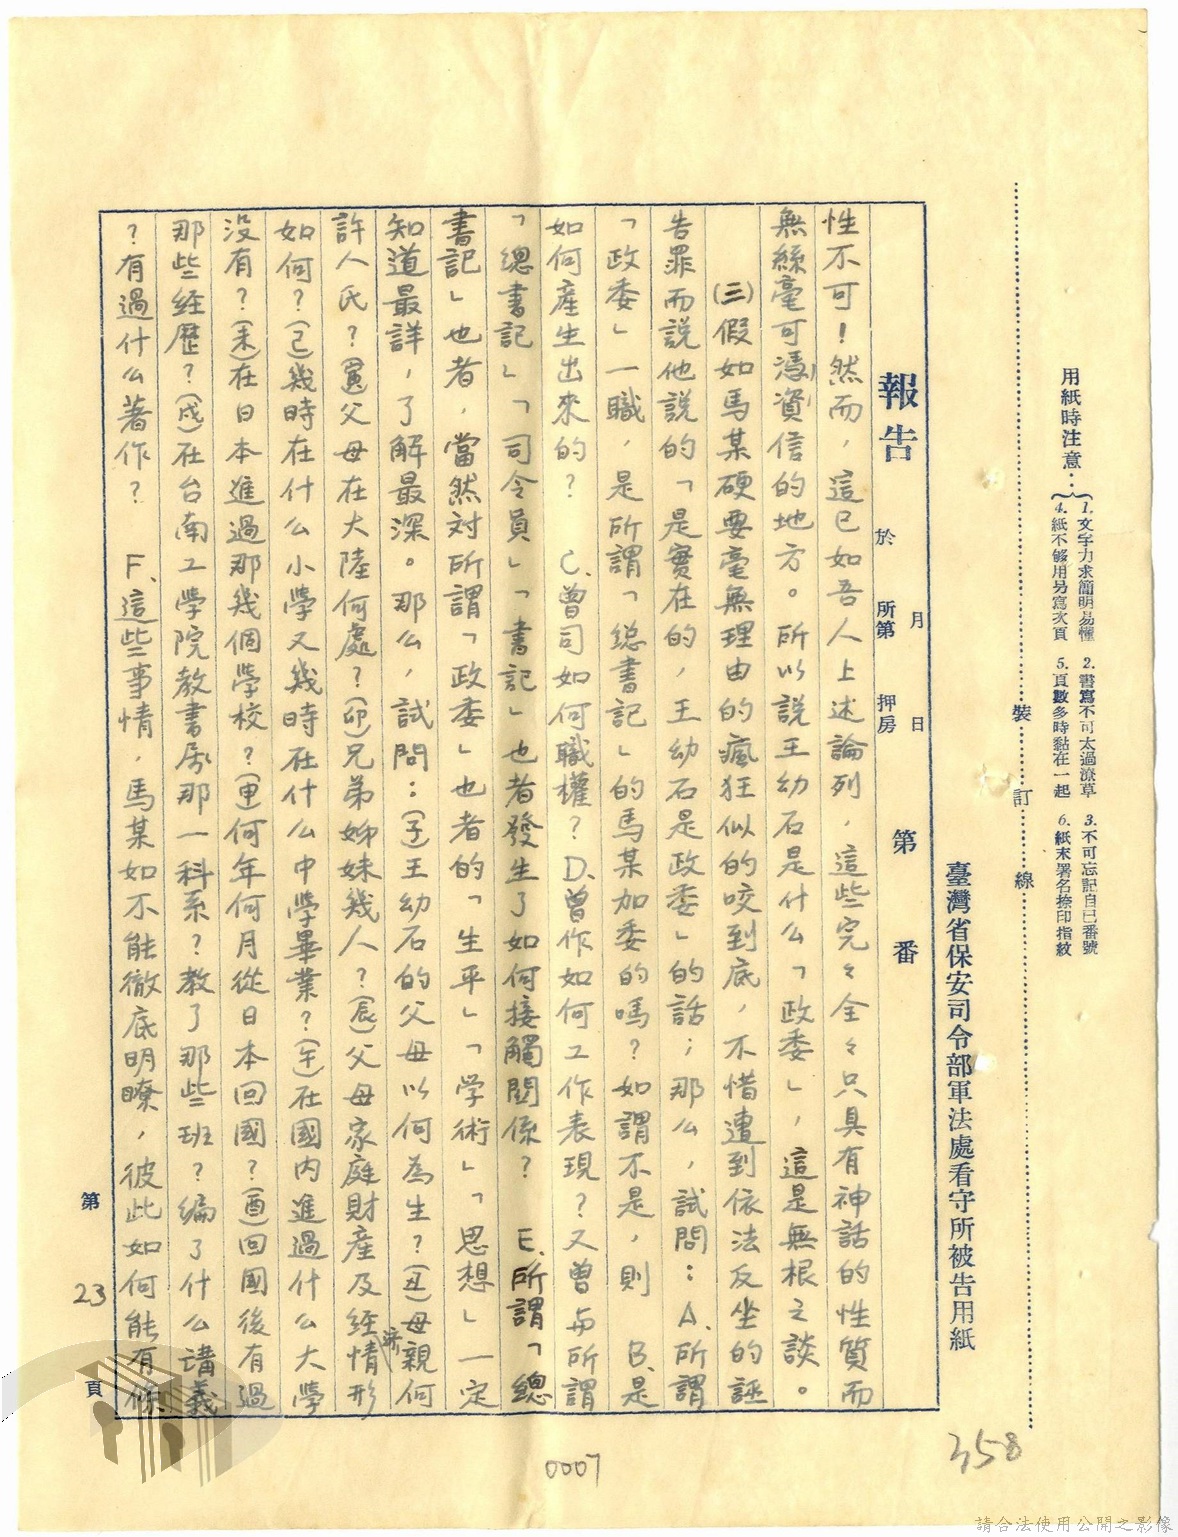 用紙時注意：
1.文字力求簡明易懂　2.書寫不可太過潦草　3.不可忘記自己番號
4.紙不够用另寫次頁　5.頁數多時黏在一起　6.紙末署名捺印指紋
裝訂線
臺灣省保安司令部軍法處看守所被告用紙
報告
於　月　日
所第　押房
第　番
性不可！然而，這已如吾人上述論列，這些完々全々只具有神話的性質而
無絲毫可憑資信的地方。所以說王幼石是什么「政委」，這是無根之談。
(三)假如馬某硬要毫無理由的瘋狂似的咬到底，不惜遭到依法反坐的誣
告罪而說他說的「是實在的，王幼石是政委」的話；那么，試問：A.所謂
「政委」一職，是所謂「總書記」的馬某加委的嗎？如謂不是，則　B.是
如何產生出來的？　C.曾司如何職權？D.曾作如何工作表現？又曾与所謂
「總書記」「司令員」「書記」也者發生了如何接觸関係？　E.所謂「總
書記」也者，當然对所謂「政委」也者的「生平」「学術」「思想」一定
知道最詳，了解最深。那么，試問：(子)王幼石的父母以何為生？(丑)母親何
許人氏？(寅)父母在大陸何處？(卯)兄弟姊妹幾人？(辰)父母家庭財產及經濟情形
如何？(巳)幾時在什么小學又幾時在什么中學畢業？(午)在國內進過什么大學
没有？(未)在日本進過那幾個學校？(申)何年何月從日本回國？(酉)回國後有過
那些經歷？(戌)在台南工學院教書屬那一科系？教了那些班？编了什么講義
？有過什么著作？　F.這些事情，馬某如不能徹底明瞭，彼此如何能有條
第23頁
0007
358
請合法使用公開之影像